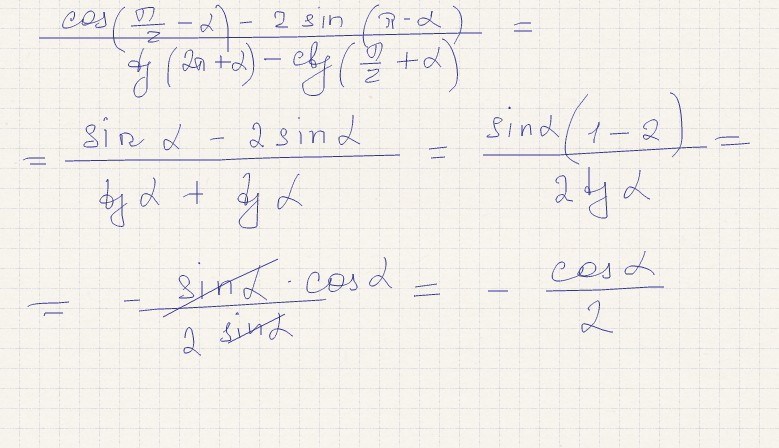 cos(π/2 - α) - 2 sin(π - α) / tg(2π + α) - ctg(π/2 + α) =
= sin α - 2 sin α / tg α + tg α = sin α (1 - 2) / 2 tg α =
= - sin α · cos α / 2 sin α = - cos α / 2